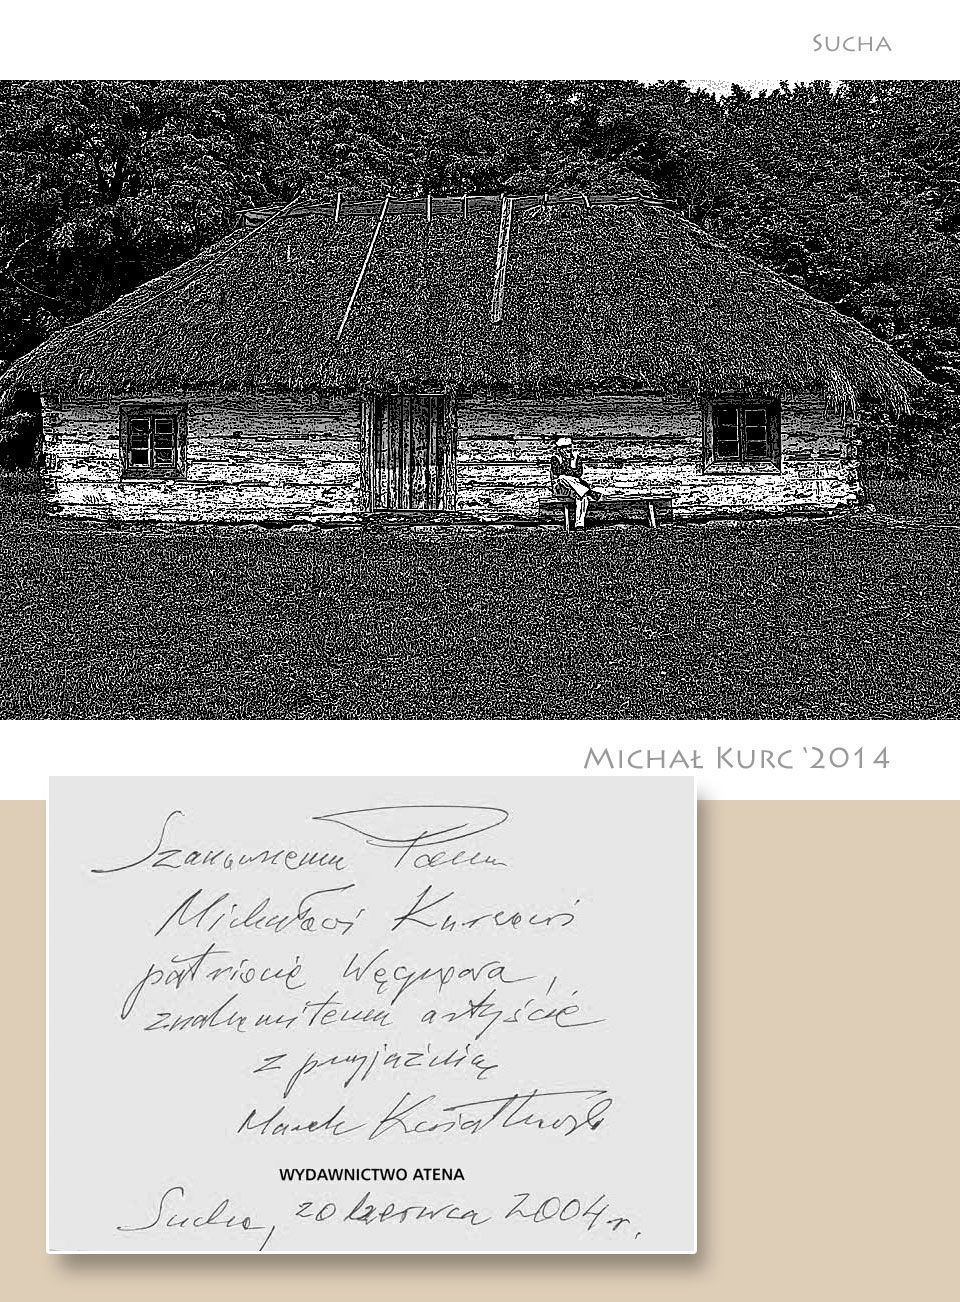 Sucha
Michał Kurc '2014
Szanownemu Panu
Michałowi Kurcowi
patriocie Węgrowa,
znakomitemu artyście
z przyjaźnią
Marek Kwiatkowski
WYDAWNICTWO ATENA
Sucha, 20 czerwca 2004 r.